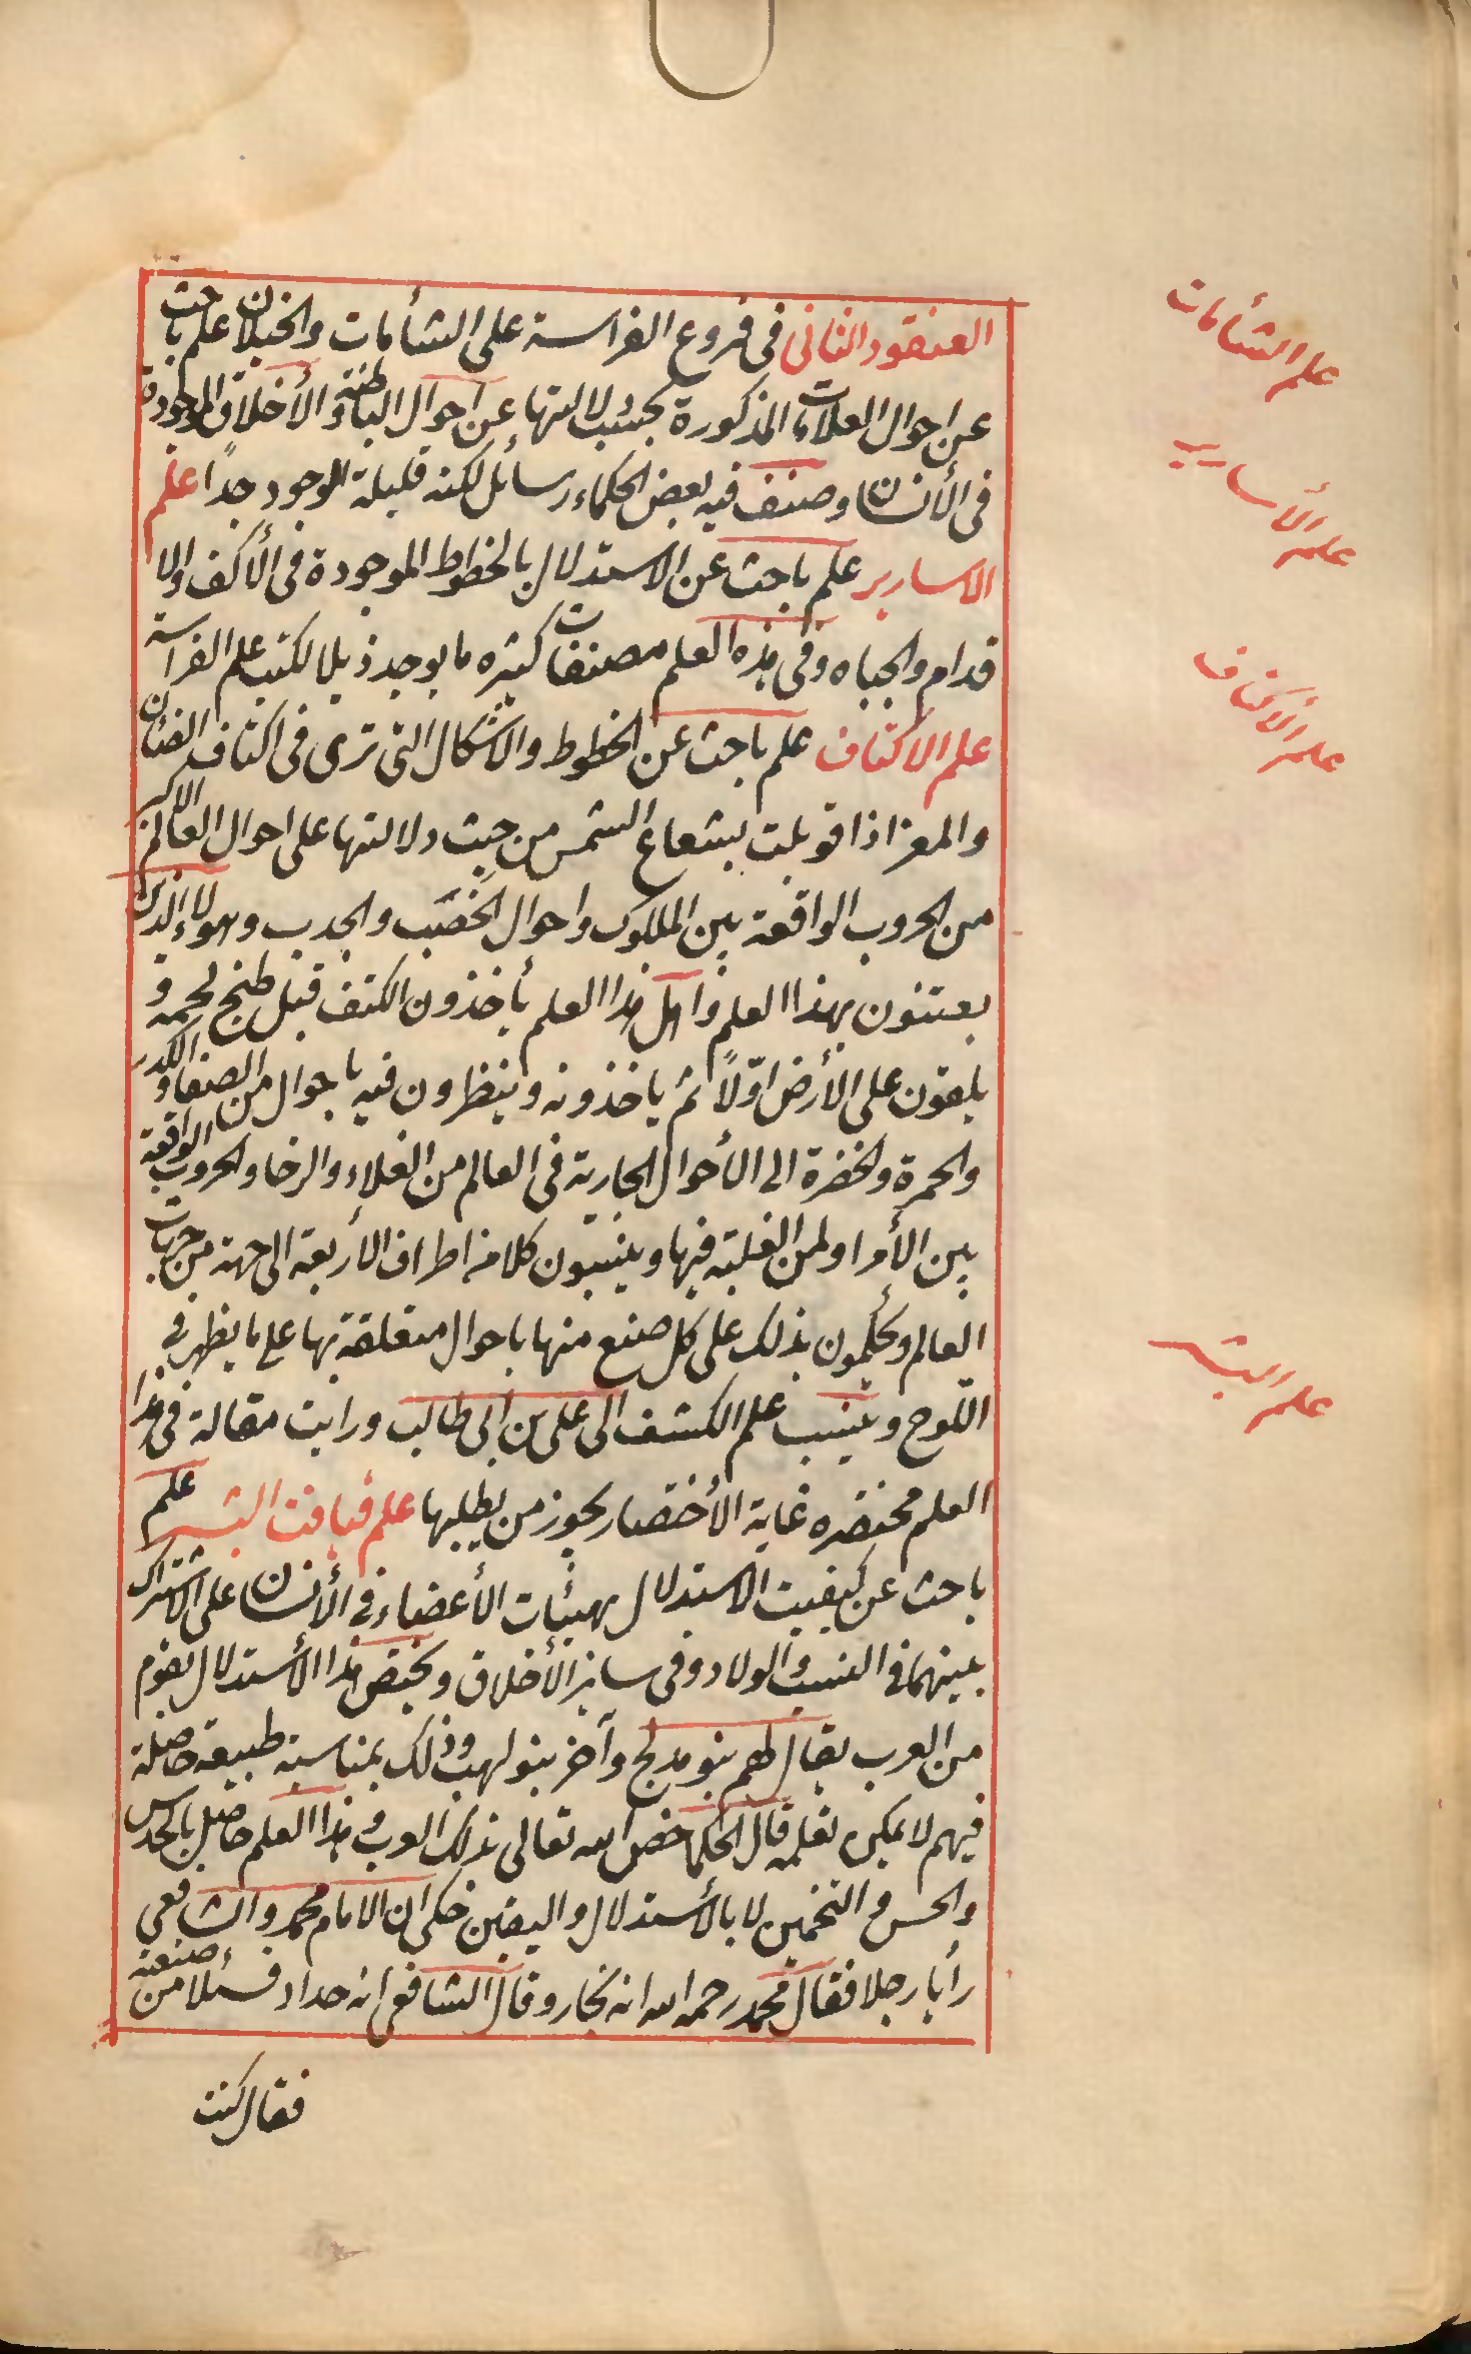 العنقود الثانى فى فروع الفراسة على الشأمات والخيلان علم باحث
علم الشأمات
عن احوال العلامات المذكورة بحسب دلالتها عن احوال الباطنة والأخلاق الموجودة
فى الأنسان وصنف فيه بعض الحكماء رسائل لكنه قليلة الوجود جدًا علم
علم الأسارير
الاسارير علم باحث عن الاستدلال بالخطوط الموجودة فى الأكف والا
قدام والجباه وفى هذه العلم مصنفات كثيره ما يوجد ذيلا لكتب علم الفراسة
علم الأكتاف
علم الاكتاف علم باحث عن الخطوط والاشكال التى ترى فى اكتاف الضئان
والمعز اذا قوبلت بشعاع الشمس من حيث دلالتها على احوال العالم الاكبر
من الحروب الواقعة بين الملوك واحوال الخصب والجدب وهولاء الذين
يعتنون بهذا العلم واهل هذا العلم يأخذون الكتف قبل طبخ لحمه و
يلقون على الأرض اوّلاً ثم ياخذونه وينظرون فيه باحوال من الصفا والكدر
والحمرة والخضرة الى الأحوال الجارية فى العالم من الغلاء والرخا والحروب الواقعة
بين الأمرا ولمن الغلبة فيها وينسبون كلا من اطراف الأربعة الى جهة من جهات
العالم ويحكمون بذلك على كل صنع منها باحوال متعلقة بها على ما يظهر فى
علم البشر
اللوح وينسب علم الكشف الى على بن ابى طالب ورايت مقالة فى هذا
العلم مختصره غاية الأختصار يحوز من يطلبها علم قيافت البشر علم
باحث عن كيفيت الاستدلال بهيئات الأعضاء فى الأنسان على الاشتراك
بينهما فى النسب والولاد وفى سائر الأخلاق ويختص هذا الأستدلال بقوم
من العرب يقال لهم بنو مدلج وآخر بنو لهب وذلك بمناسبة طبيعة حاصلة
فيهم لا يمكن تعلمه قال الحكما خص الله تعالى بذلك العرب وهذا العلم حاصل بالحدس
والحس والتخمين لا بالأستدلال واليقين حكى ان الامام محمد والشافعى
رأيا رجلا فقال محمد رحمه الله انه نجار وقال الشافعى انه حداد فسئلا من صنعته
فقال كنت